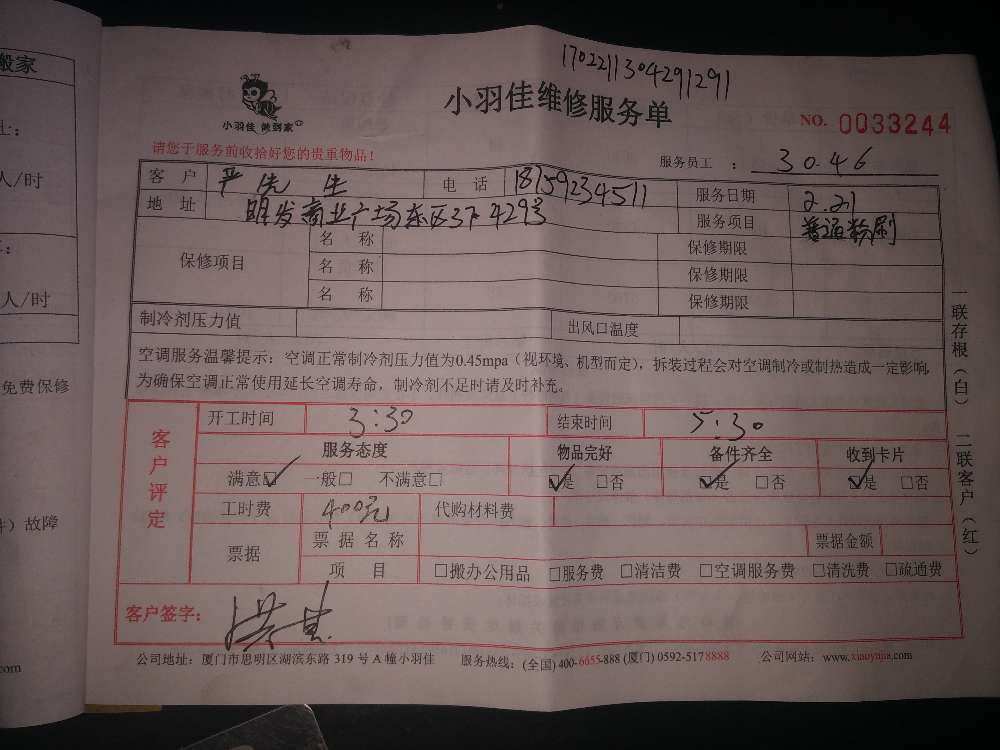 搬家
士：
人/时
：
人/时
免费保修
）故障
com
1702211304291291
小羽佳 做到家
小羽佳维修服务单
NO. 0033244
请您于服务前收拾好您的贵重物品！
服务员工 ： 3046
客 户 严先生 电 话 18759234511 服务日期 2.21
地 址 明发商业广场东区3F 429号 服务项目 普通粉刷
保修项目 名 称 保修期限
名 称 保修期限
名 称 保修期限
制冷剂压力值 出风口温度
空调服务温馨提示：空调正常制冷剂压力值为0.45mpa（视环境、机型而定），拆装过程会对空调制冷或制热造成一定影响，
为确保空调正常使用延长空调寿命，制冷剂不足时请及时补充。
客户评定 开工时间 3:30 结束时间 5:30
服务态度 物品完好 备件齐全 收到卡片
满意☑ 一般□ 不满意□ ☑是 □否 ☑是 □否 ☑是 □否
工时费 400元 代购材料费
票据 票据名称 票据金额
项 目 □搬办公用品 □服务费 □清洁费 □空调服务费 □清洗费 □疏通费
客户签字：
公司地址：厦门市思明区湖滨东路 319 号 A 幢小羽佳 服务热线：(全国) 400-6655-888 (厦门) 0592-5178888 公司网站：www.xiaoyujia.com
一联存根（白） 二联客户（红）